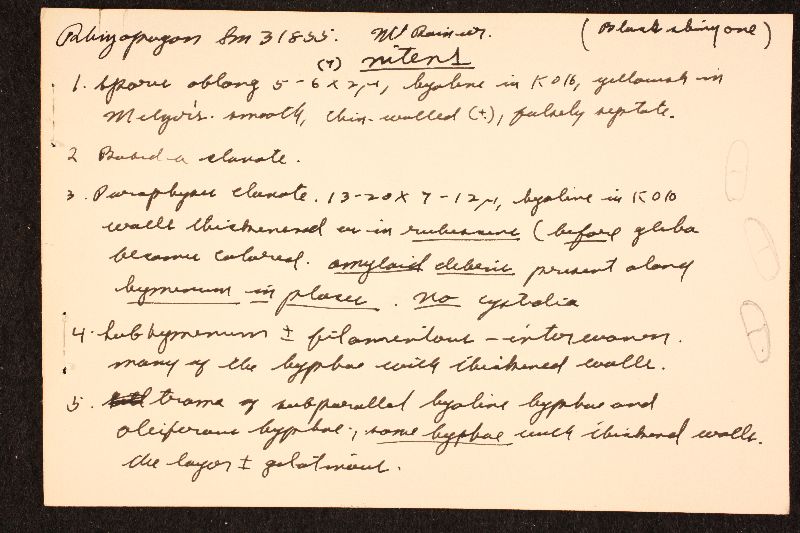 Rhizopogon Sm 31855. Mt Rainier. (Black shiny one)
(4) nitens
1. Spores oblong 5-6 x 2μ, hyaline in KOH, yellowish in
Melzer's. smooth, thin-walled (±), falsely septate.
2 Basidia clavate.
3. Paraphyses clavate. 13-20 x 7-12μ, hyaline in KOH
walls thickened as in rubescens (before gleba
becomes colored. amyloid debris present along
hymenium in places. No cystidia
4. Subhymenium ± filamentous - interwoven.
many of the hyphae with thickened walls.
5. trama of subparallel hyaline hyphae and
oleiferous hyphae, some hyphae with thickened walls.
the layer ± gelatinous.